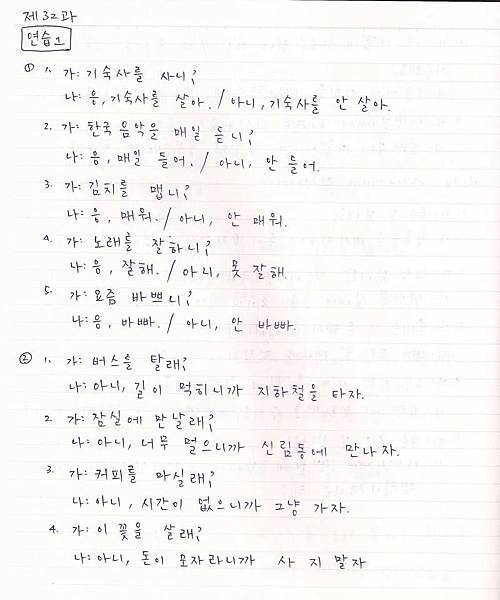 제32과
연습1
① 1. 가: 기숙사를 사니?
나: 응, 기숙사를 살아. / 아니, 기숙사를 안 살아.
2. 가: 한국 음악을 매일 듣니?
나: 응, 매일 들어. / 아니, 안 들어.
3. 가: 김치를 맵니?
나: 응, 매워. / 아니, 안 매워.
4. 가: 노래를 잘하니?
나: 응, 잘해. / 아니, 못 잘해.
5. 가: 요즘 바쁘니?
나: 응, 바빠. / 아니, 안 바빠.
② 1. 가: 버스를 탈래?
나: 아니, 길이 먹히니까 지하철을 타자.
2. 가: 잠실에 만날래?
나: 아니, 너무 멀으니까 신림동에 만나자.
3. 가: 커피를 마실래?
나: 아니, 시간이 없으니까 그냥 가자.
4. 가: 이 꽃을 살래?
나: 아니, 돈이 모자라니까 사 지 말자